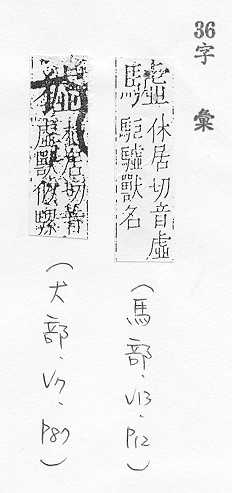 36字彙
驉
休居切音虛
駏驉獸名
(馬部.V13.P12)
居切音
虛獸似騾
(犬部.V7.P87)